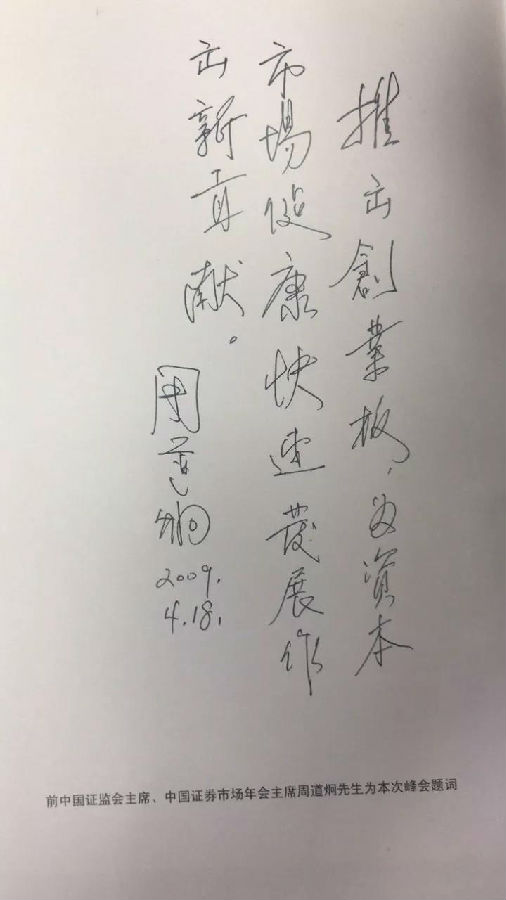 推出創業板，为資本
市場健康快速發展作
出新貢献。
周道炯
2009.
4.18.
前中国证监会主席、中国证券市场年会主席周道炯先生为本次峰会题词